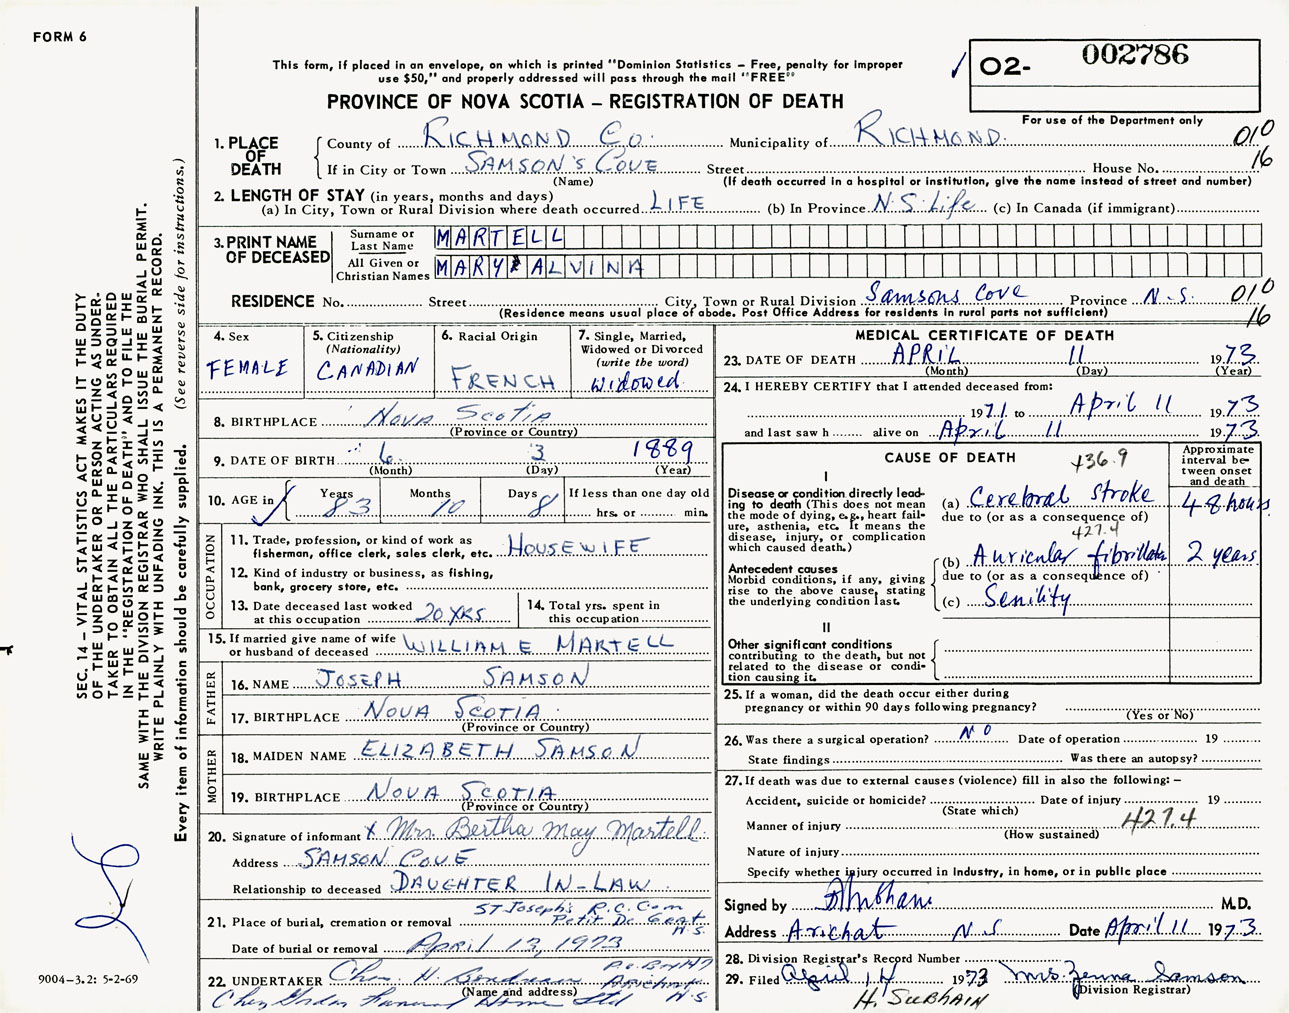 FORM 6
This form, if placed in an envelope, on which is printed "Dominion Statistics – Free, penalty for improper
use $50," and properly addressed will pass through the mail "FREE"
PROVINCE OF NOVA SCOTIA – REGISTRATION OF DEATH
O2- 002786
For use of the Department only
1. PLACE OF DEATH
County of RICHMOND CO. Municipality of RICHMOND. 010
If in City or Town SAMSON'S COVE Street House No. 16
(Name) (If death occurred in a hospital or institution, give the name instead of street and number)
2. LENGTH OF STAY (in years, months and days)
(a) In City, Town or Rural Division where death occurred LIFE (b) In Province N.S. Life (c) In Canada (if immigrant)
3. PRINT NAME OF DECEASED
Surname or Last Name MARTELL
All Given or Christian Names MARY ALVINA
RESIDENCE No. Street City, Town or Rural Division Samsons Cove Province N.S. 010
(Residence means usual place of abode. Post Office Address for residents in rural parts not sufficient) 16
4. Sex
FEMALE
5. Citizenship
(Nationality)
CANADIAN
6. Racial Origin
FRENCH
7. Single, Married,
Widowed or Divorced
(write the word)
Widowed
8. BIRTHPLACE NOVA SCOTIA
(Province or Country)
9. DATE OF BIRTH 6 3 1889
(Month) (Day) (Year)
10. AGE in Years 83 Months 10 Days 8 If less than one day old
hrs. or min.
OCCUPATION
11. Trade, profession, or kind of work as
fisherman, office clerk, sales clerk, etc. HOUSEWIFE
12. Kind of industry or business, as fishing,
bank, grocery store, etc.
13. Date deceased last worked
at this occupation 20 YRS
14. Total yrs. spent in
this occupation
15. If married give name of wife
or husband of deceased WILLIAM E MARTELL
FATHER
16. NAME JOSEPH SAMSON
17. BIRTHPLACE NOVA SCOTIA
(Province or Country)
MOTHER
18. MAIDEN NAME ELIZABETH SAMSON
19. BIRTHPLACE NOVA SCOTIA
(Province or Country)
20. Signature of informant x Mrs. Bertha May Martell
Address SAMSON COVE
Relationship to deceased DAUGHTER IN-LAW
21. Place of burial, cremation or removal ST Joseph's R.C. Cem
Petit De Grat
N.S.
Date of burial or removal April 13, 1973
22. UNDERTAKER Chas. H. Boudreau P.O. Box
(Name and address) Arichat
Funeral Home Ltd N.S.
MEDICAL CERTIFICATE OF DEATH
23. DATE OF DEATH APRIL 11 1973
(Month) (Day) (Year)
24. I HEREBY CERTIFY that I attended deceased from:
1971 to April 11 1973
and last saw h alive on April 11 1973
CAUSE OF DEATH 436.9
Approximate interval between onset and death
I
Disease or condition directly lead-
ing to death (This does not mean
the mode of dying, e.g., heart fail-
ure, asthenia, etc. It means the
disease, injury, or complication
which caused death.)
(a) Cerebral Stroke 48 hours
due to (or as a consequence of)
427.4
(b) Auricular fibrillation 2 years
Antecedent causes
Morbid conditions, if any, giving
rise to the above cause, stating
the underlying condition last.
due to (or as a consequence of)
(c) Senility
II
Other significant conditions
contributing to the death, but not
related to the disease or condi-
tion causing it.
25. If a woman, did the death occur either during
pregnancy or within 90 days following pregnancy?
(Yes or No)
26. Was there a surgical operation? NO Date of operation 19
State findings Was there an autopsy?
27. If death was due to external causes (violence) fill in also the following: –
Accident, suicide or homicide? Date of injury 19
(State which)
Manner of injury 427.4
(How sustained)
Nature of injury
Specify whether injury occurred in Industry, in home, or in public place
Signed by M.D.
Address Arichat N S Date April 11 1973
28. Division Registrar's Record Number
29. Filed April 14 1973 Mrs. Zenna Samson
(Division Registrar)
H. SUBHAIN
SEC. 14 – VITAL STATISTICS ACT MAKES IT THE DUTY
OF THE UNDERTAKER OR PERSON ACTING AS UNDER-
TAKER TO OBTAIN ALL THE PARTICULARS REQUIRED
IN THE "REGISTRATION OF DEATH" AND TO FILE THE
SAME WITH THE DIVISION REGISTRAR WHO SHALL ISSUE THE BURIAL PERMIT.
WRITE PLAINLY WITH UNFADING INK. THIS IS A PERMANENT RECORD.
Every item of information should be carefully supplied. (See reverse side for instructions.)
9004-3.2: 5-2-69